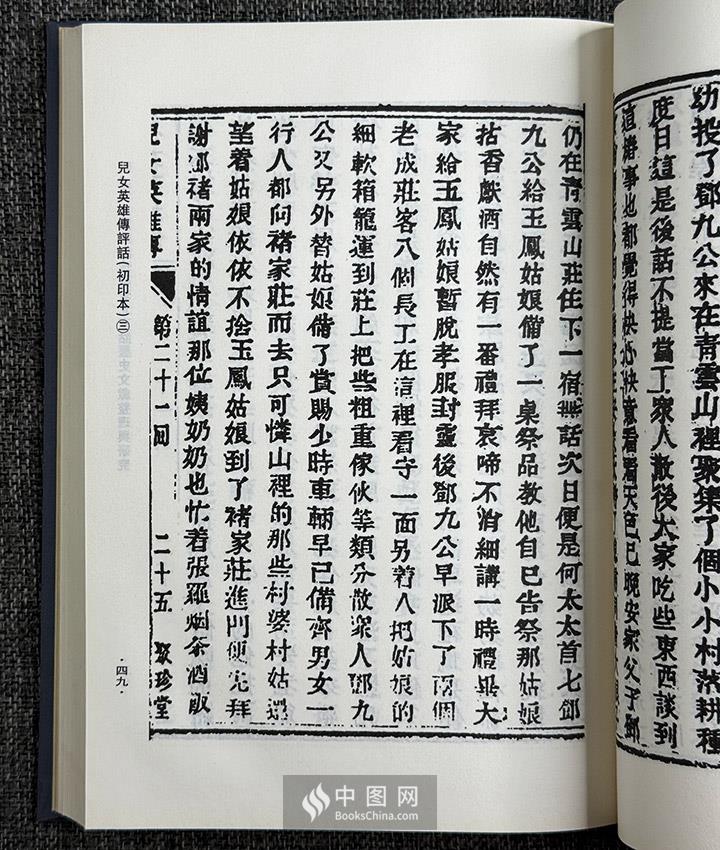 幼投了鄧九公來在青雲山裡聚集了個小小村落耕種
度日這是後話不提當下衆人散後大家吃些東西談到
這樁事也都覺得快心快意看看天色已晚安家父子鄧
仍在青雲山莊住下一宿無話次日便是何太太首七鄧
九公給玉鳳姑娘備了一桌祭品教他自己告祭那姑娘
拈香獻酒自然有一番禮拜哀啼不消細講一時禮畢大
家給玉鳳姑娘暫脫孝服封靈後鄧九公早派下了兩個
老成莊客八個長工在這裡看守一面另着人把姑娘的
細軟箱籠運到莊上把些粗重傢伙等類分散衆人鄧九
公又另外替姑娘備了賞賜少時車輛早已備齊男女一
行人都向褚家莊而去只可憐山裡的那些村婆村姑還
望着姑娘依依不捨玉鳳姑娘到了褚家莊進門便先拜
謝鄧褚兩家的情誼那位姨奶奶也忙着張羅烟茶酒飯
兒女英雄傳 第二十一回 二十五 聚珍堂
兒女英雄傳評話(初印本)㊂
·四九
中图网
BooksChina.com